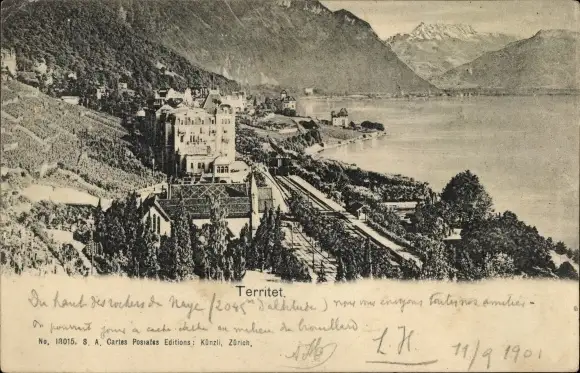 Territet.
Du haut des rochers de Naye (2045 d'altitude) nous vous envoyons toutes nos amitiés -
on pourrait jouer à cache cache au milieu du brouillard
No. 18015. S. A. Cartes Postales Editions: Künzli, Zürich.
L H 11/9 1901